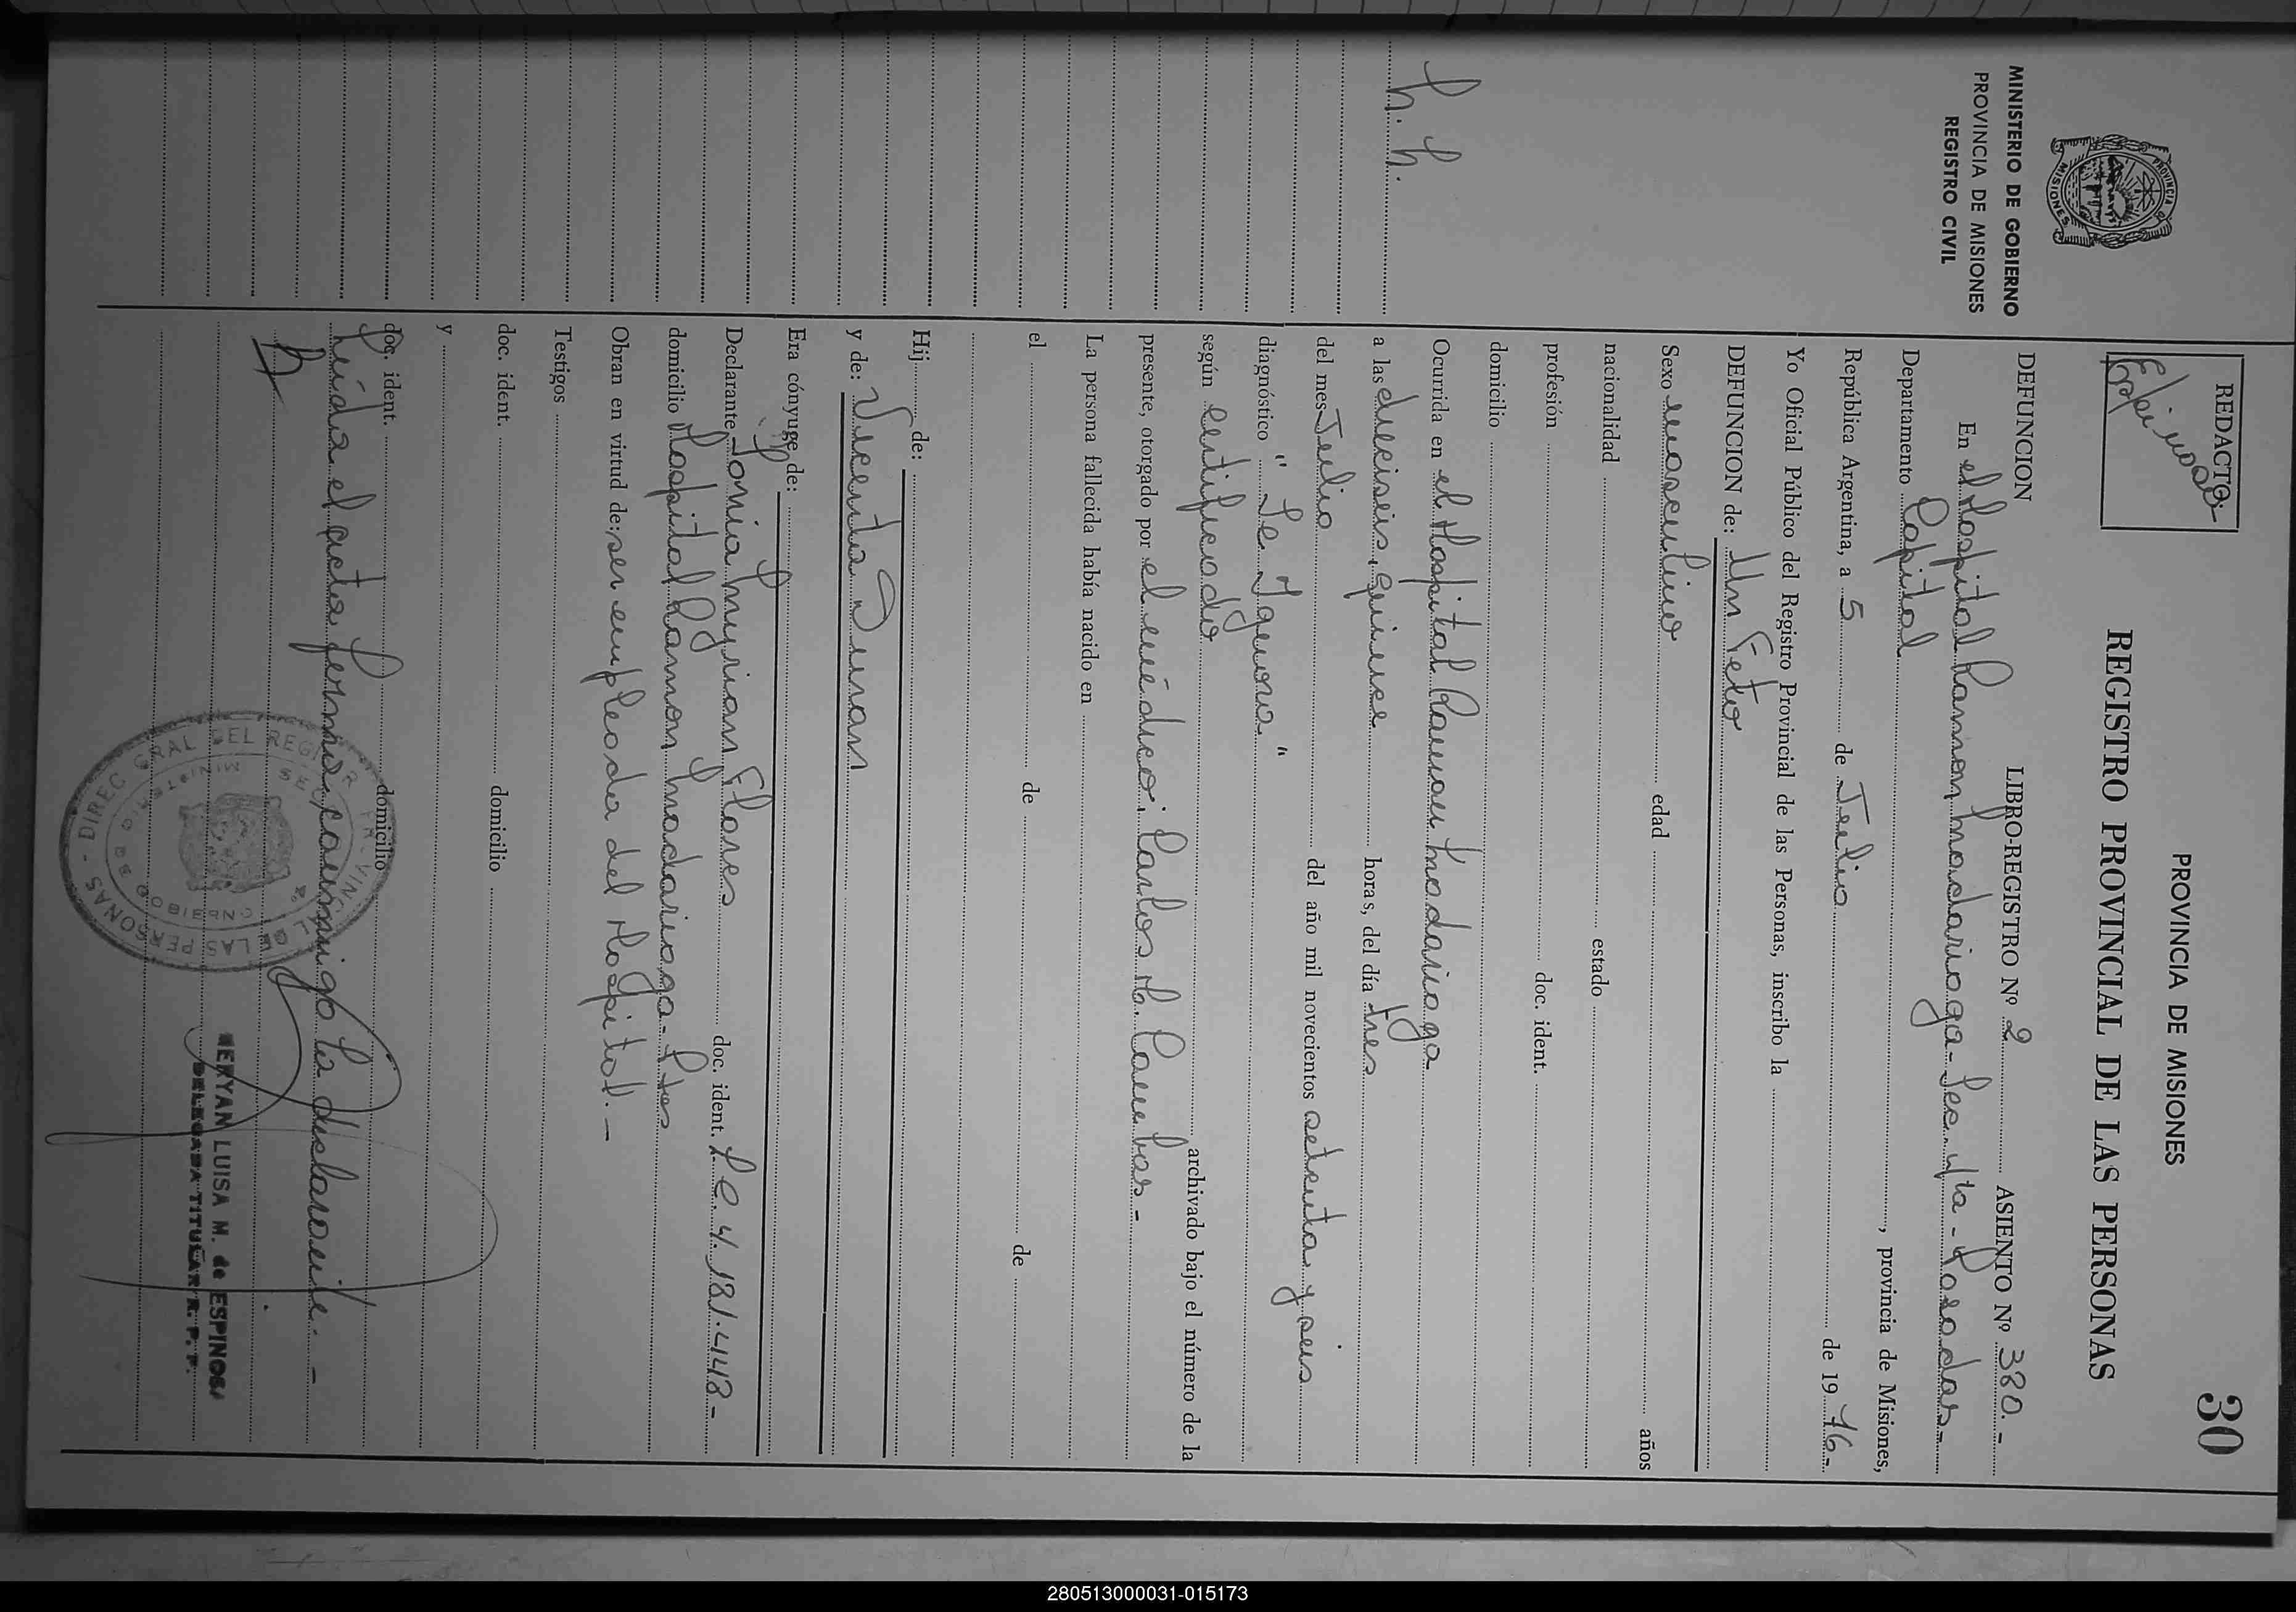 30
PROVINCIA DE MISIONES
REGISTRO PROVINCIAL DE LAS PERSONAS
REDACTO:
Espinosa
MINISTERIO DE GOBIERNO
PROVINCIA DE MISIONES
REGISTRO CIVIL
PROVINCIA DE MISIONES
h. h.
DEFUNCION LIBRO-REGISTRO Nº 2 ASIENTO Nº 380.-
En el Hospital Ramon Madariaga - Sec. 4/ta - Posadas -
Departamento Capital, provincia de Misiones,
República Argentina, a 5 de Julio de 1976-
Yo Oficial Público del Registro Provincial de las Personas, inscribo la
DEFUNCION de: Un Feto
Sexo masculino edad años
nacionalidad estado
profesión doc. ident.
domicilio
Ocurrida en el Hospital Ramon Madariaga
a las dieciseis, quince horas, del día tres
del mes Julio del año mil novecientos setenta y seis
diagnóstico " Se Ignora "
según certificado archivado bajo el número de la
presente, otorgado por el médico: Carlos H. Cambas -
La persona fallecida había nacido en
el de de
Hij de:
y de: Vicenta Duran
Era cónyuge de:
Declarante Tonia Myriam Flores doc. ident. L.C. 4.181.448-
domicilio Hospital Ramon Madariaga - Pdas
Obran en virtud de: ser empleada del Hospital. -
Testigos
doc. ident. domicilio
y
doc. ident. domicilio
Leída el acta firma conmigo la declarante. -
MERYAN LUISA M. de ESPINOSA
DELEGADA TITULAR R. P. P.
280513000031-015173